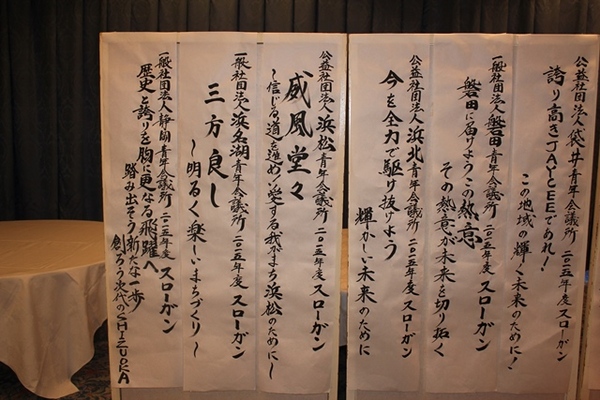 公益社団法人袋井青年会議所 二〇一五年度 スローガン
誇り高きJAYCEEであれ!
この地域の輝く未来のために!
一般社団法人磐田青年会議所 二〇一五年度 スローガン
磐田に届けようこの熱意
その熱意が未来を切り拓く
公益社団法人浜北青年会議所 二〇一五年度 スローガン
今を全力で駆け抜けよう
輝かしい未来のために
公益社団法人浜松青年会議所 二〇一五年度 スローガン
威風堂々
〜信じる道を進め!愛する我がまち浜松のために〜
一般社団法人浜名湖青年会議所 二〇一五年度 スローガン
三方良し
〜明るく楽しいまちづくり〜
一般社団法人静岡青年会議所 二〇一五年度 スローガン
歴史と誇りを胸に更なる飛躍へ
踏み出そう新たな一歩
創ろう次代のSHIZUOKA